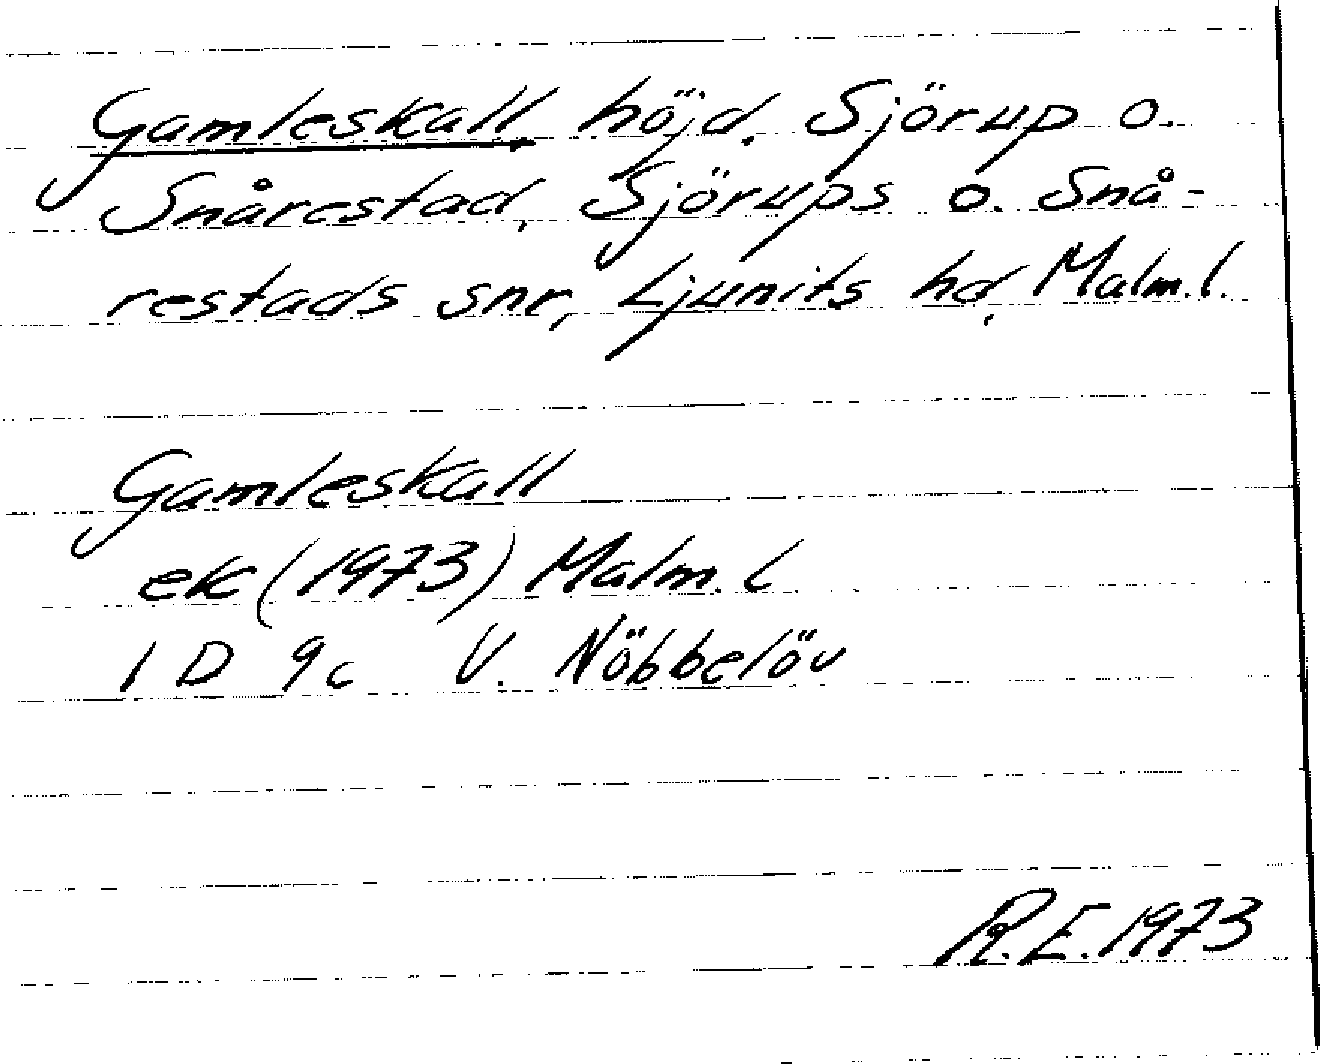 Gamleskall, höjd, Sjörup o.
Snårestad, Sjörups o. Snå-
restads snr, Ljunits hd, Malm. l.
Gamleskall
ek (1973) Malm. l
1 D 9c V. Nöbbelöv
R.E. 1973